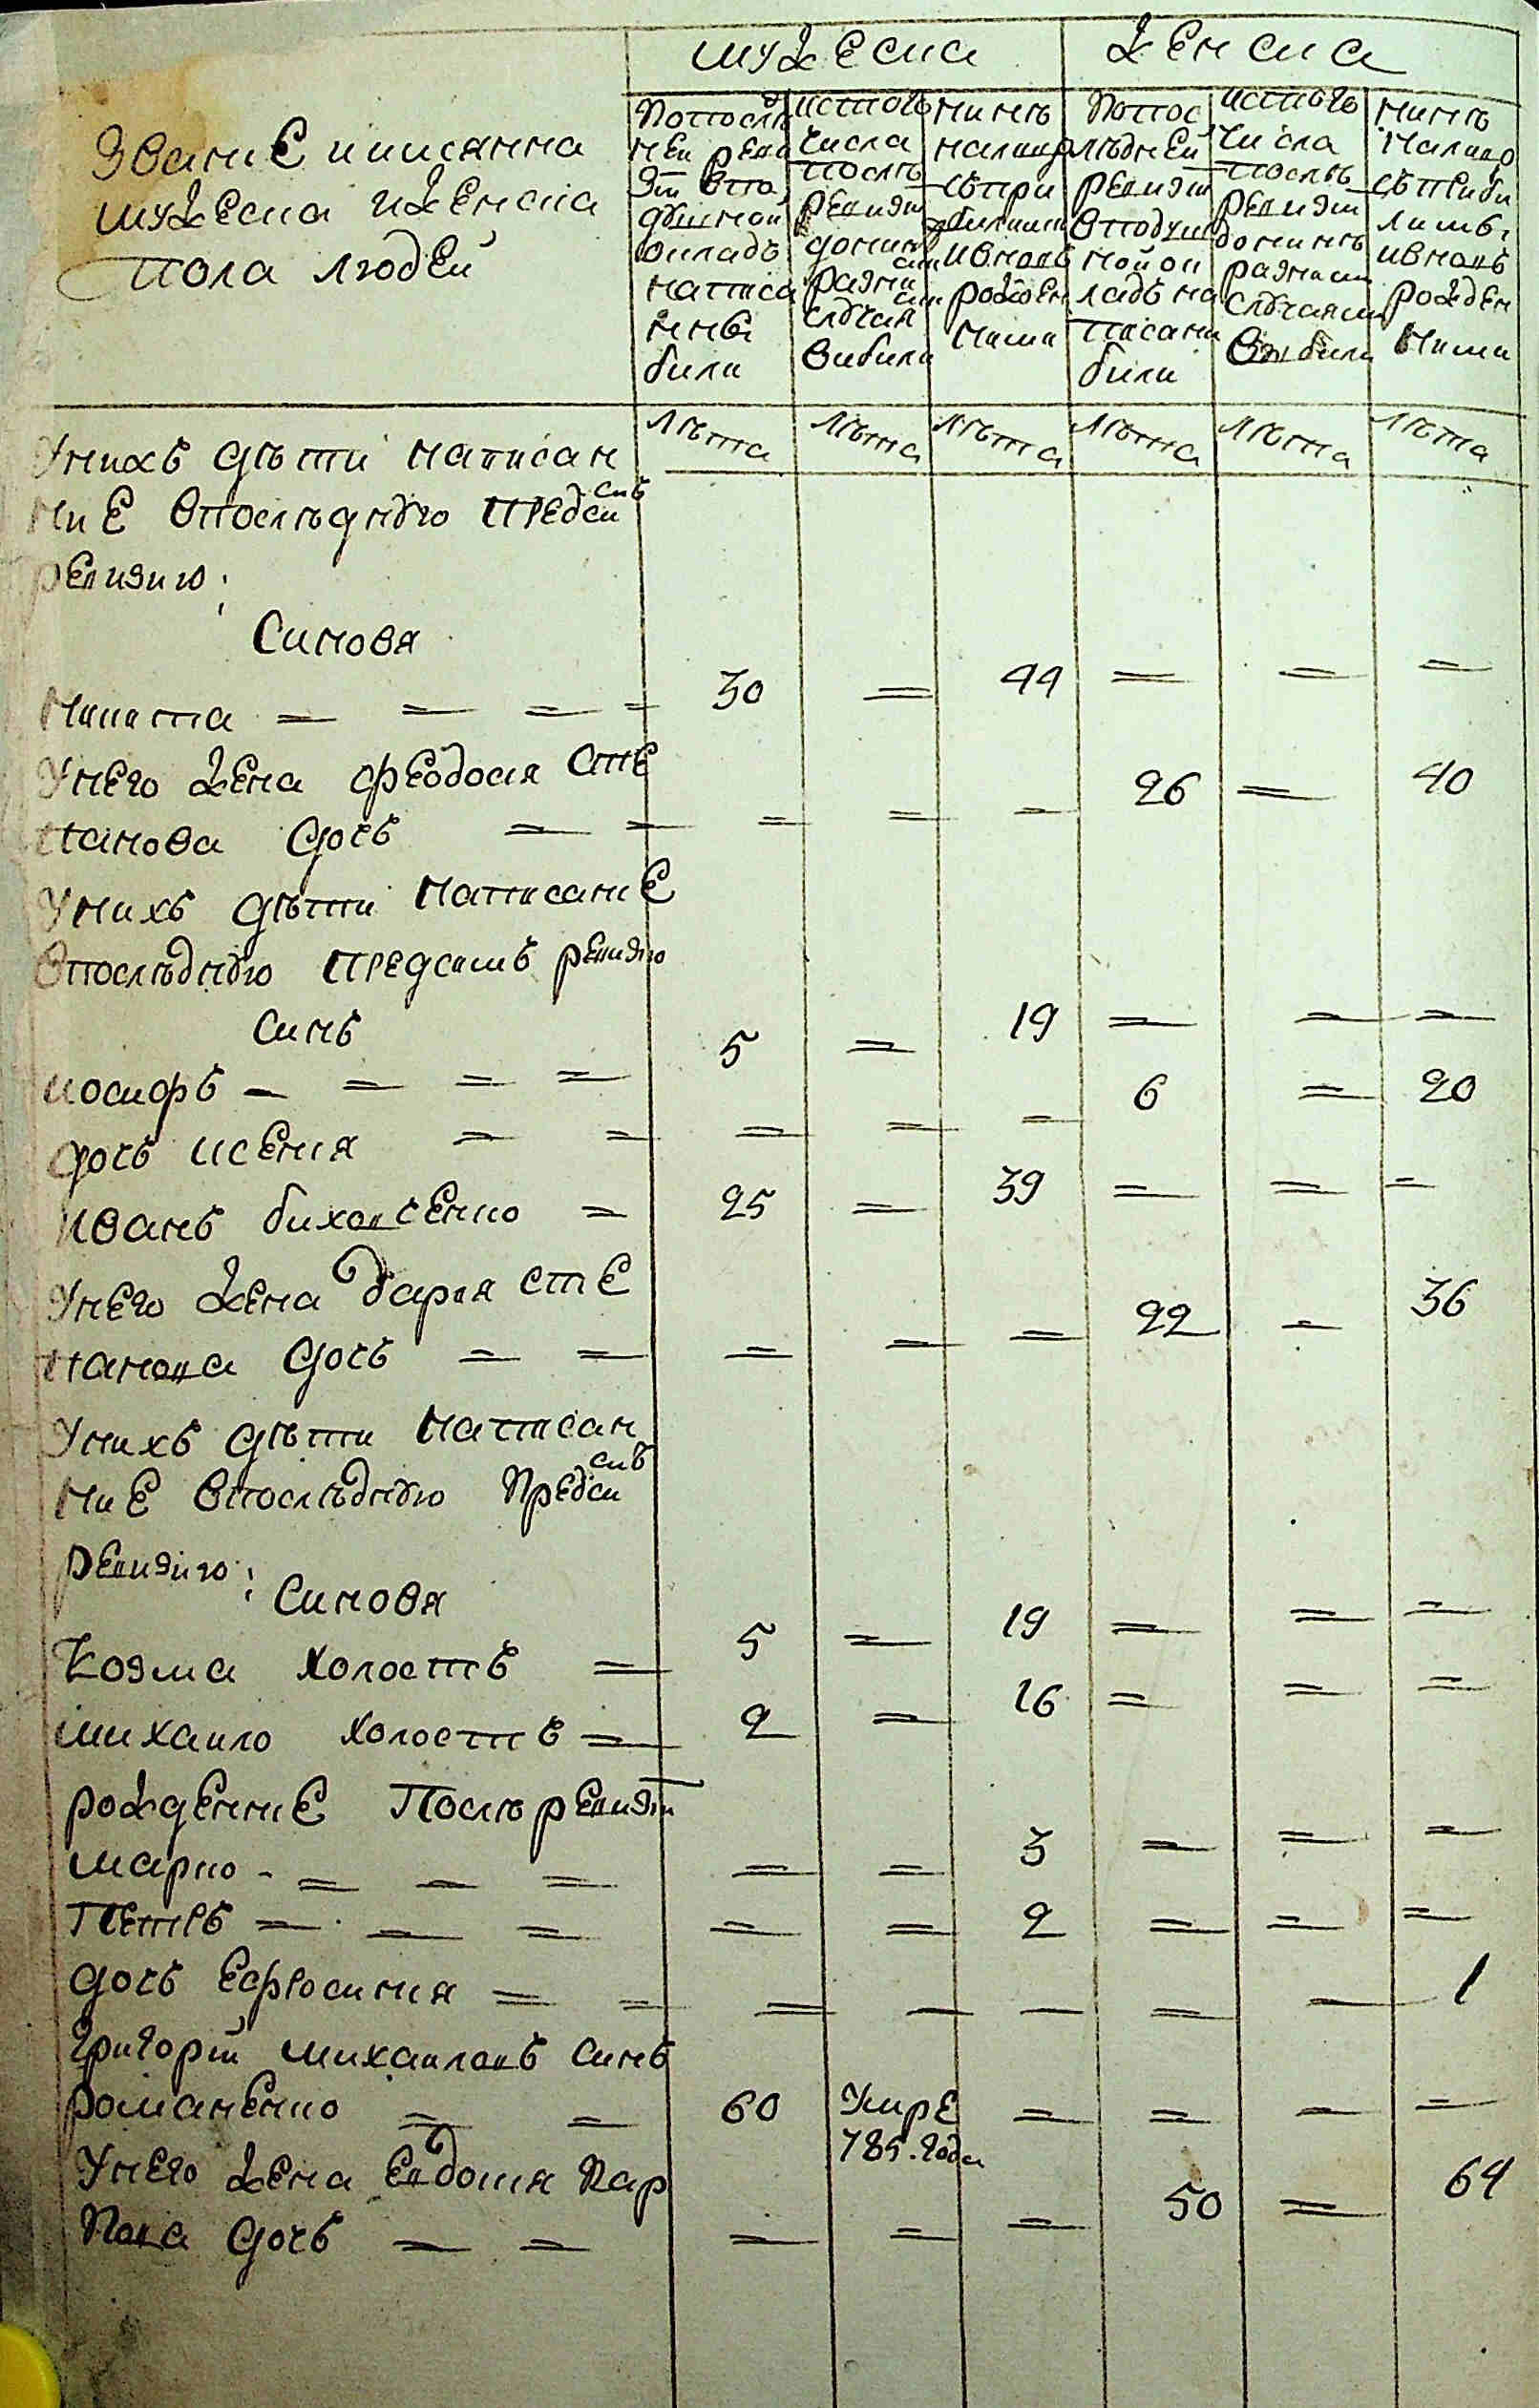 мужеска женска
Званіе иимянна
мужеска иженска
пола людей
Попослѣд
ней реви
зіи впо
душной
окладъ
написа
нны
были
истого
числа
послѣ
ревизіи
донинѣ
разни
ми
случая
ми
выбыли
нинѣ
налицо
сътри
былими
ивновь
рожден
ними
Попос
лѣдней
ревизіи
вподуш
ной ок
ладъ на
писани
были
истого
числа
послѣ
ревизіи
донинѣ
разними
случаями
выбыли
нинѣ
налицо
сътриби
лими
ивновь
рожден
ними
лѣта лѣта лѣта лѣта лѣта лѣта
Унихъ дѣти написан
ніе впослѣднюю предси сиъ
ревизию:
Синовя
Микита = = = = 30 = 44 = = =
Унего жена феодосия сте
панова дочь = = = = = 26 = 40
Унихъ дѣти написаніе
впослѣднюю предсимъ ревизию
синъ
иосифъ = = = = 5 = 19 = = =
дочь ксения = = = = = 6 = 20
иванъ биховченко = 25 = 39 = = =
Унего жена дария сте
панова дочь = = = = = 22 = 36
Унихъ дѣти написан
ніе впослѣднюю предси сиъ
ревизию:
Синовя
Козма холостъ = 5 = 19 = = =
михаило холостъ = 2 = 16 = = =
рожденніе послѣ ревизіи
марко - = = = = = 3 = = =
Петръ = = = = = 2 = = =
дочь ефросиния = = = = = = = 1
григорій михаиловъ синъ
романенко = = 60 Умре = = = =
785. года
Унего жена евдокия кар
пова дочь = = = = = 50 = 64